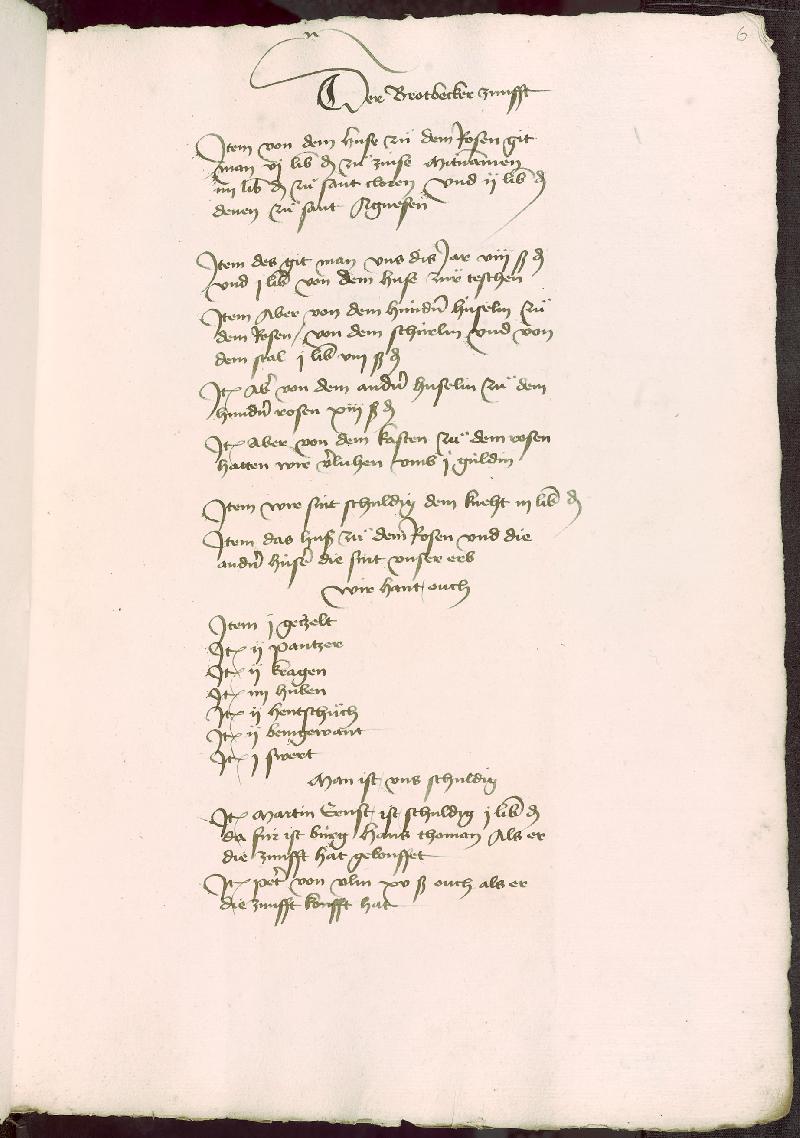 6
Der Brotbecker zunfft
Item von dem huse zü dem Rosen git
man vj lib ₰ zü zinse Mitnamen
iiij lib ₰ zü sant cloren vnd ij lib ₰
denen zü sant Agnesen
Item des git man vns dis Jar viij ß ₰
vnd j lib von dem huse zur teschen
Item Aber von dem hindn̄ hüselin zü
dem Rosen / von dem schürlin vnd von
dem stal j lib viij ß ₰
Itē Ab' von dem andn̄ huselin zü dem
hindn̄ rosen xiij ß ₰
Itē Aber von dem kasten zü dem rosen
hatten wir v'luhen vmb j guldin
Item wir sint schuldig dem kneht iij lib ₰
Item das huß zü dem Rosen vnd die
andn̄ hüser die sint vnser erb
wir hant ouch
Item j gezelt
Itē ij pantzer
Itē ij kragen
Itē iiij huben
Itē ij hentschüch
Itē ij beingewant
Itē j swert
Man ist vns schuldig
Itē Martin Ernst ist schuldig j lib ₰
da für ist bürg Hans thoman Als er
die zunfft hat gekouffet
Itē pet' von vlm xv ß ouch als er
die zunfft koufft hat